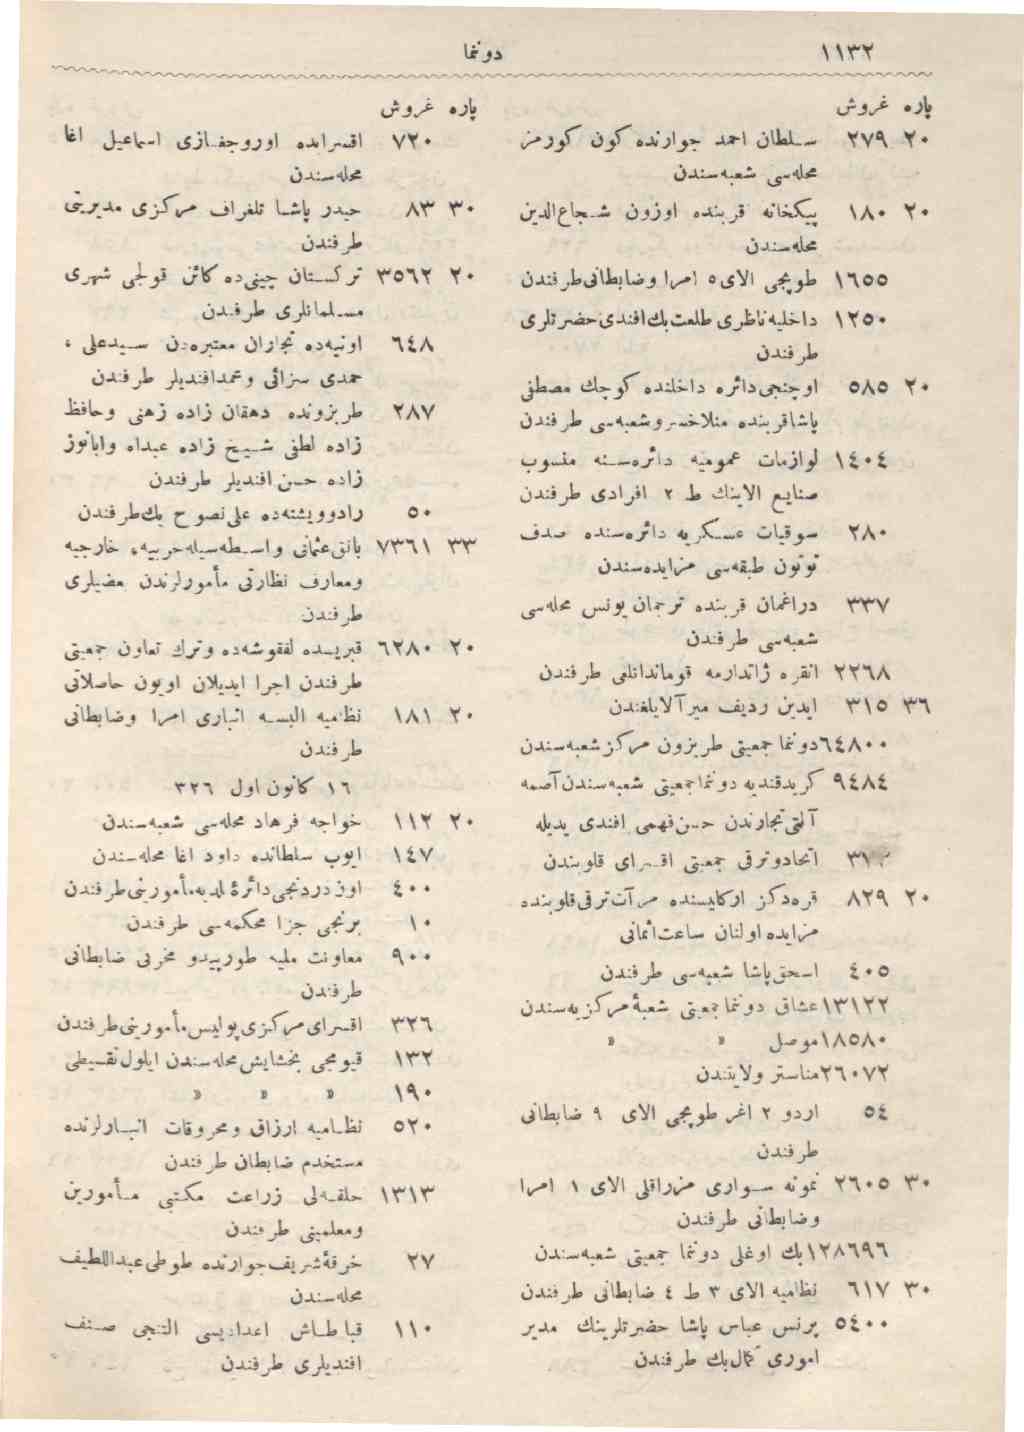 ١١٣٢
دونما
پاره غروش
٢٠ ٢٧٩ سلطان احمد جوارنده كون كورمز
محله‌سى شعبه‌سندن
٢٠ ١٨٠ پيكخانه قربنده اوزون شجاع‌الدين
محله‌سندن
١٦٥٥ طوپجى الاى ٥ امرا وضابطانى طرفندن
١٢٥٠ داخليه ناظرى طلعت بك افندى حضرتلرى
طرفندن
٢٠ ٥٨٥ اوچنجى دائره داخلنده كوچك مصطفى
پاشا قربنده منلاخسرو شعبه‌سى طرفندن
١٤٠٤ لوازمات عموميه دائره‌سنه منسوب
صنايع الاينك ط ٢ افرادى طرفندن
٢٨٠ سوقيات عسكريه دائره‌سنده صدف
توتون طبقه‌سى مزايده‌سندن
٣٣٧ دراغمان قربنده ترجمان يونس محله‌سى
شعبه‌سى طرفندن
٢٢٦٨ انقره ژاندارمه قوماندانلغى طرفندن
٣٦ ٣١٥ ايدين رديف ميرآلايلغندن
٦٤٨٠٠ دونما جمعيتى طربزون مركز شعبه‌سندن
٩٤٨٤ كريد قنديه دونما جمعيتى شعبه‌سندن آصمه
آلتى تجارندن حسن فهمى افندى يديله
اتحاد وترقى جمعيتى اقسراى قلوبندن
٢٠ ٨٢٩ قره‌دكز اركليسنده مرآت ترقى قلوبنده
مزايده اولنان ساعت اثمانى
٤٠٥ اسحق پاشا شعبه‌سى طرفندن
١٣١٢٢ عشاق دونما جمعيتى شعبهٔ مركزيه‌سندن
١٨٥٨٠ موصل » »
٢٦٠٧٢ مناستر ولايتندن
٥٤ اردو ٢ اغر طوپجى الاى ٩ ضابطانى
طرفندن
٣٠ ٢٦٠٥ نمونه سوارى مزراقلى الاى ١ امرا
وضابطانى طرفندن
١٢٨٦٩٦ بك اوغلى دونما جمعيتى شعبه‌سندن
٣٠ ٦١٧ نظاميه الاى ٣ ط ٤ ضابطانى طرفندن
٥٤٠٠ پرنس عباس پاشا حضرتلرينك مدير
امورى كمال بك طرفندن
پاره غروش
٧٢٠ اقسرايده اوروجغازى اسماعيل اغا
محله‌سندن
٣٠ ٨٣ حيدر پاشا تلغراف مركزى مديريتى
طرفندن
٢٠ ٣٥٦٢ تركستان چينى‌ده كائن قولجى شهرى
مسلمانلرى طرفندن
٦٤٨ اونيه‌ده تجاران معتبره‌دن سيدعلى ،
حمدى سزائى ومحمدافنديلر طرفندن
٢٨٧ طربزونده دهقان زاده زهنى وحافظ
زاده لطفى شيخ زاده عبداله وابانوز
زاده حسن افنديلر طرفندن
٥٠ رادوويشته‌ده على نصوح بك طرفندن
٣٣ ٧٣٦١ بانق عثمانى واسطه‌سيله حربيه، خارجيه
ومعارف نظارتى مأمورلرندن بعضيلرى
طرفندن
٢٠ ٦٢٨٠ قبريسده لفقوشه‌ده وترك تعاون جمعيتى
طرفندن اجرا ايديلان اويون حاصلاتى
٢٠ ١٨١ نظاميه البسه انبارى امرا وضابطانى
طرفندن
١٦ كانون اول ٣٢٦
٢٠ ١١٢ خواجه فرهاد محله‌سى شعبه‌سندن
١٤٧ ايوب سلطانده داود اغا محله‌سندن
٤٠٠ اون دردنجى دائرهٔ بلديه مأمورينى طرفندن
١٠ برنجى جزا محكمه‌سى طرفندن
٩٠٠ معاونت مليه طورپيدو مخربى ضابطانى
طرفندن
٣٢٦ اقسراى مركزى پوليس مأمورينى طرفندن
١٣٢ قيومجى بخشايش محله‌سندن ايلول تقسيطى
١٩٠ » » »
٥٢٠ نظاميه ارزاق ومحروقات انبارلرنده
مستخدم ضابطان طرفندن
١٣١٣ حلقه‌لى زراعت مكتبى مأمورين
ومعلمينى طرفندن
٢٧ خرقهٔ شريف جوارنده طوطى عبداللطيف
محله‌سندن
١١٠ قباطاش اعداديسى التنجى صنف
افنديلرى طرفندن